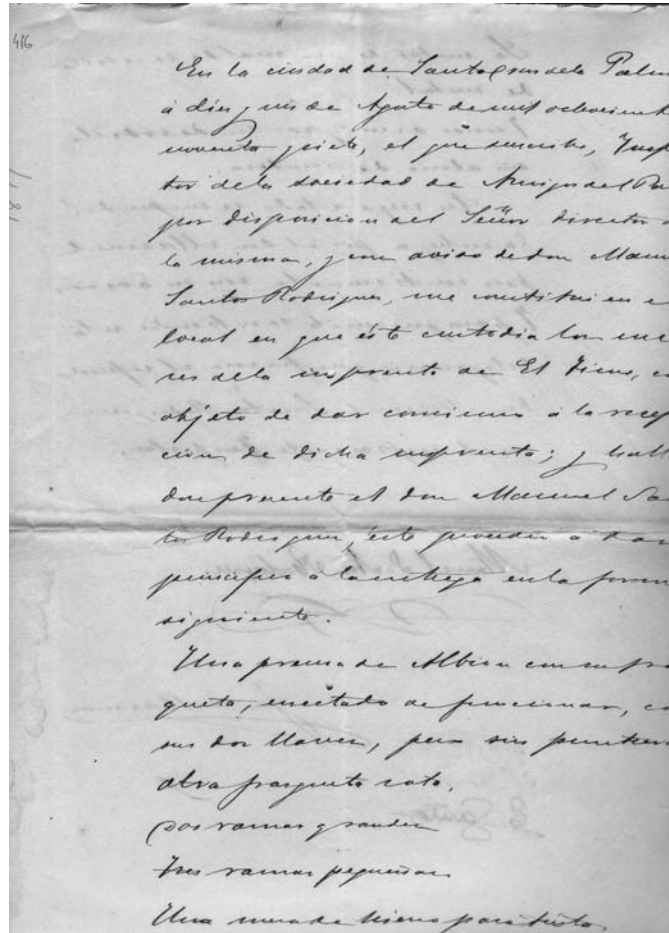 416
En la ciudad de Santa Cruz de la Palm
á diez y seis de Agosto de mil ochocient
noventa y siete, el que suscribe, Insp
tor de la sociedad de Amigos del Pa
por disposicion del Señor director d
la misma, y con aviso de don Manu
Santos Rodriguez, me constitui en e
local en que éste custodia los en
res de la imprenta de El Time, c
objeto de dar comienzo á la recep
cion de dicha imprenta; y hall
dose presente el don Manuel Sa
tos Rodriguez, éste procedió á dar
principio á la entrega en la form
siguiente.
Una prensa de Albion con su fras
queta, en estado de funcionar, co
sus dos llaves, pero sin
otra frasqueta rota,
Dos ramas grandes
Tres ramas pequeñas
Una mesa de hierro para tinta